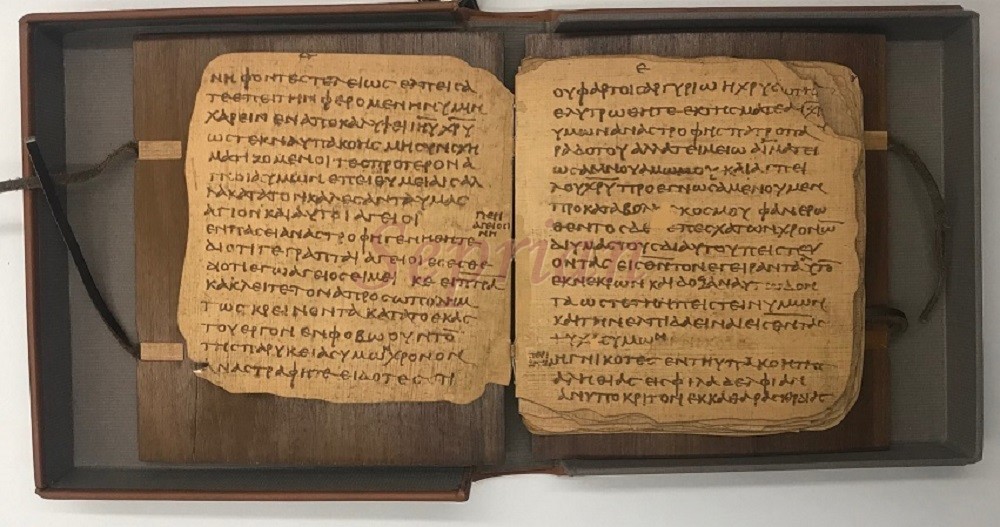 ΝΗΦΟΝΤΕϹ ΤΕΛΕΙΩϹ ΕΛΠΕΙϹΑ
ΤΕ ΕΠΕΙ ΤΗΝ ΦΕΡΟΜΕΝΗΝ ΥΜΙΝ
ΧΑΡΕΙΝ ΕΝ ΑΠΟΚΑΛΥΨΕΙ ΙΗΥ ΧΡΥ
ΩϹ ΤΕΚΝΑ ΥΠΑΚΟΗϹ ΜΗ ϹΥΝϹΧΗ
ΜΑΤΙΖΟΜΕΝΟΙ ΤΕϹ ΠΡΟΤΕΡΟΝ Α
ΓΝΟΙΑ ΥΜΩΝ ΕΠΕΙΘΥΜΕΙΑΙϹ ΑΛ
ΛΑ ΚΑΤΑ ΤΟΝ ΚΑΛΕϹΑΝΤΑ ΥΜΑϹ
ΑΓΙΟΝ ΚΑΙ ΑΥΤΟΙ ΑΓΕΙΟΙ
ΠΕΡΙ
ΑΓΕΙΟϹΥ
ΝΗ
ΕΝ ΠΑϹΕΙ ΑΝΑϹΤΡΟΦΗ ΓΕΝΗΘΗΤΕ
ΔΙΟΤΙ ΓΕΓΡΑΠΤΑΙ ΑΓΕΙΟΙ ΕϹΕϹΘΕ
ΔΙΟΤΙ ΕΓΩ ΑΓΕΙΟϹ ΕΙΜΕΙ ΚΕ ΕΙ ΠΡΑ
ΚΑΚΛΕΙΤΕ ΤΟΝ ΑΠΡΟϹΩΠΟΛΗΜ
ΤΩϹ ΚΡΕΙΝΟΝΤΑ ΚΑΤΑ ΤΟ ΕΚΑϹ
ΤΟΥ ΕΡΓΟΝ ΕΝ ΦΟΒΩ ΟΥΝ ΤΟ
ΤΗϹ ΠΑΡΥΚΕΙΑϹ ΥΜΩΝ ΧΡΟΝΟΝ
ΑΝΑϹΤΡΑΦΗΤΕ ΕΙΔΟΤΕϹ ΟΤΙ
Ε
ΟΥ ΦΑΡΤΟΙϹ ΑΡΓΥΡΙΩ Η ΧΡΥϹΙΩ
ΕΛΥΤΡΩΘΗΤΕ ΕΚ ΤΗϹ ΜΑΤΕΑϹ
ΥΜΩΝ ΑΝΑϹΤΡΟΦΗϹ ΠΑΤΡΟΠΑ
ΡΑΔΟΤΟΥ ΑΛΛΑ ΤΕΙΜΕΙΩ ΑΙΜΑΤΕΙ
ΩϹ ΑΜΝΟΥ ΑΜΩΜΟΥ ΚΑΙ ΑϹΠΕΙ
ΛΟΥ ΧΡΥ ΠΡΟΕΓΝΩϹΜΕΝΟΥ ΜΕΝ
ΠΡΟ ΚΑΤΑΒΟΛΗϹ ΚΟϹΜΟΥ ΦΑΝΕΡΩ
ΘΕΝΤΟϹ ΔΕ ΕΠ ΕϹΧΑΤΩΝ ΧΡΟΝΩ
ΔΙ ΥΜΑϹ ΤΟΥϹ ΔΙ ΑΥΤΟΥ ΠΕΙϹΤΕΥ
ΟΝΤΑϹ ΕΙϹ ΘΝ ΤΟΝ ΕΓΕΙΡΑΝΤΑ ΑΥΤΟ
ΕΚ ΝΕΚΡΩΝ ΚΑΙ ΔΟΞΑΝ ΑΥΤΩ ΔΟΝ
ΤΑ ΩϹΤΕ ΤΗΝ ΠΕΙϹΤΕΙΝ ΥΜΩΝ
ΚΑΙ ΤΗΝ ΕΛΠΙΔΑ ΕΙΝΑΙ ΕΙϹ ΘΝ ΤΑϹ
ΨΥΧΑϹ ΥΜΩΝ
ΗΓΝΙΚΟΤΕϹ ΕΝ ΤΗ ΥΠΑΚΟΗ ΤΗϹ
ΑΛΗΘΙΑϹ ΕΙϹ ΦΙΛΑΔΕΛΦΙΑΝ
ΑΝΥΠΟΚΡΙΤΟΝ ΕΚ ΚΑΘΑΡΑϹ ΚΑΡΔΙΑϹ
Seprian